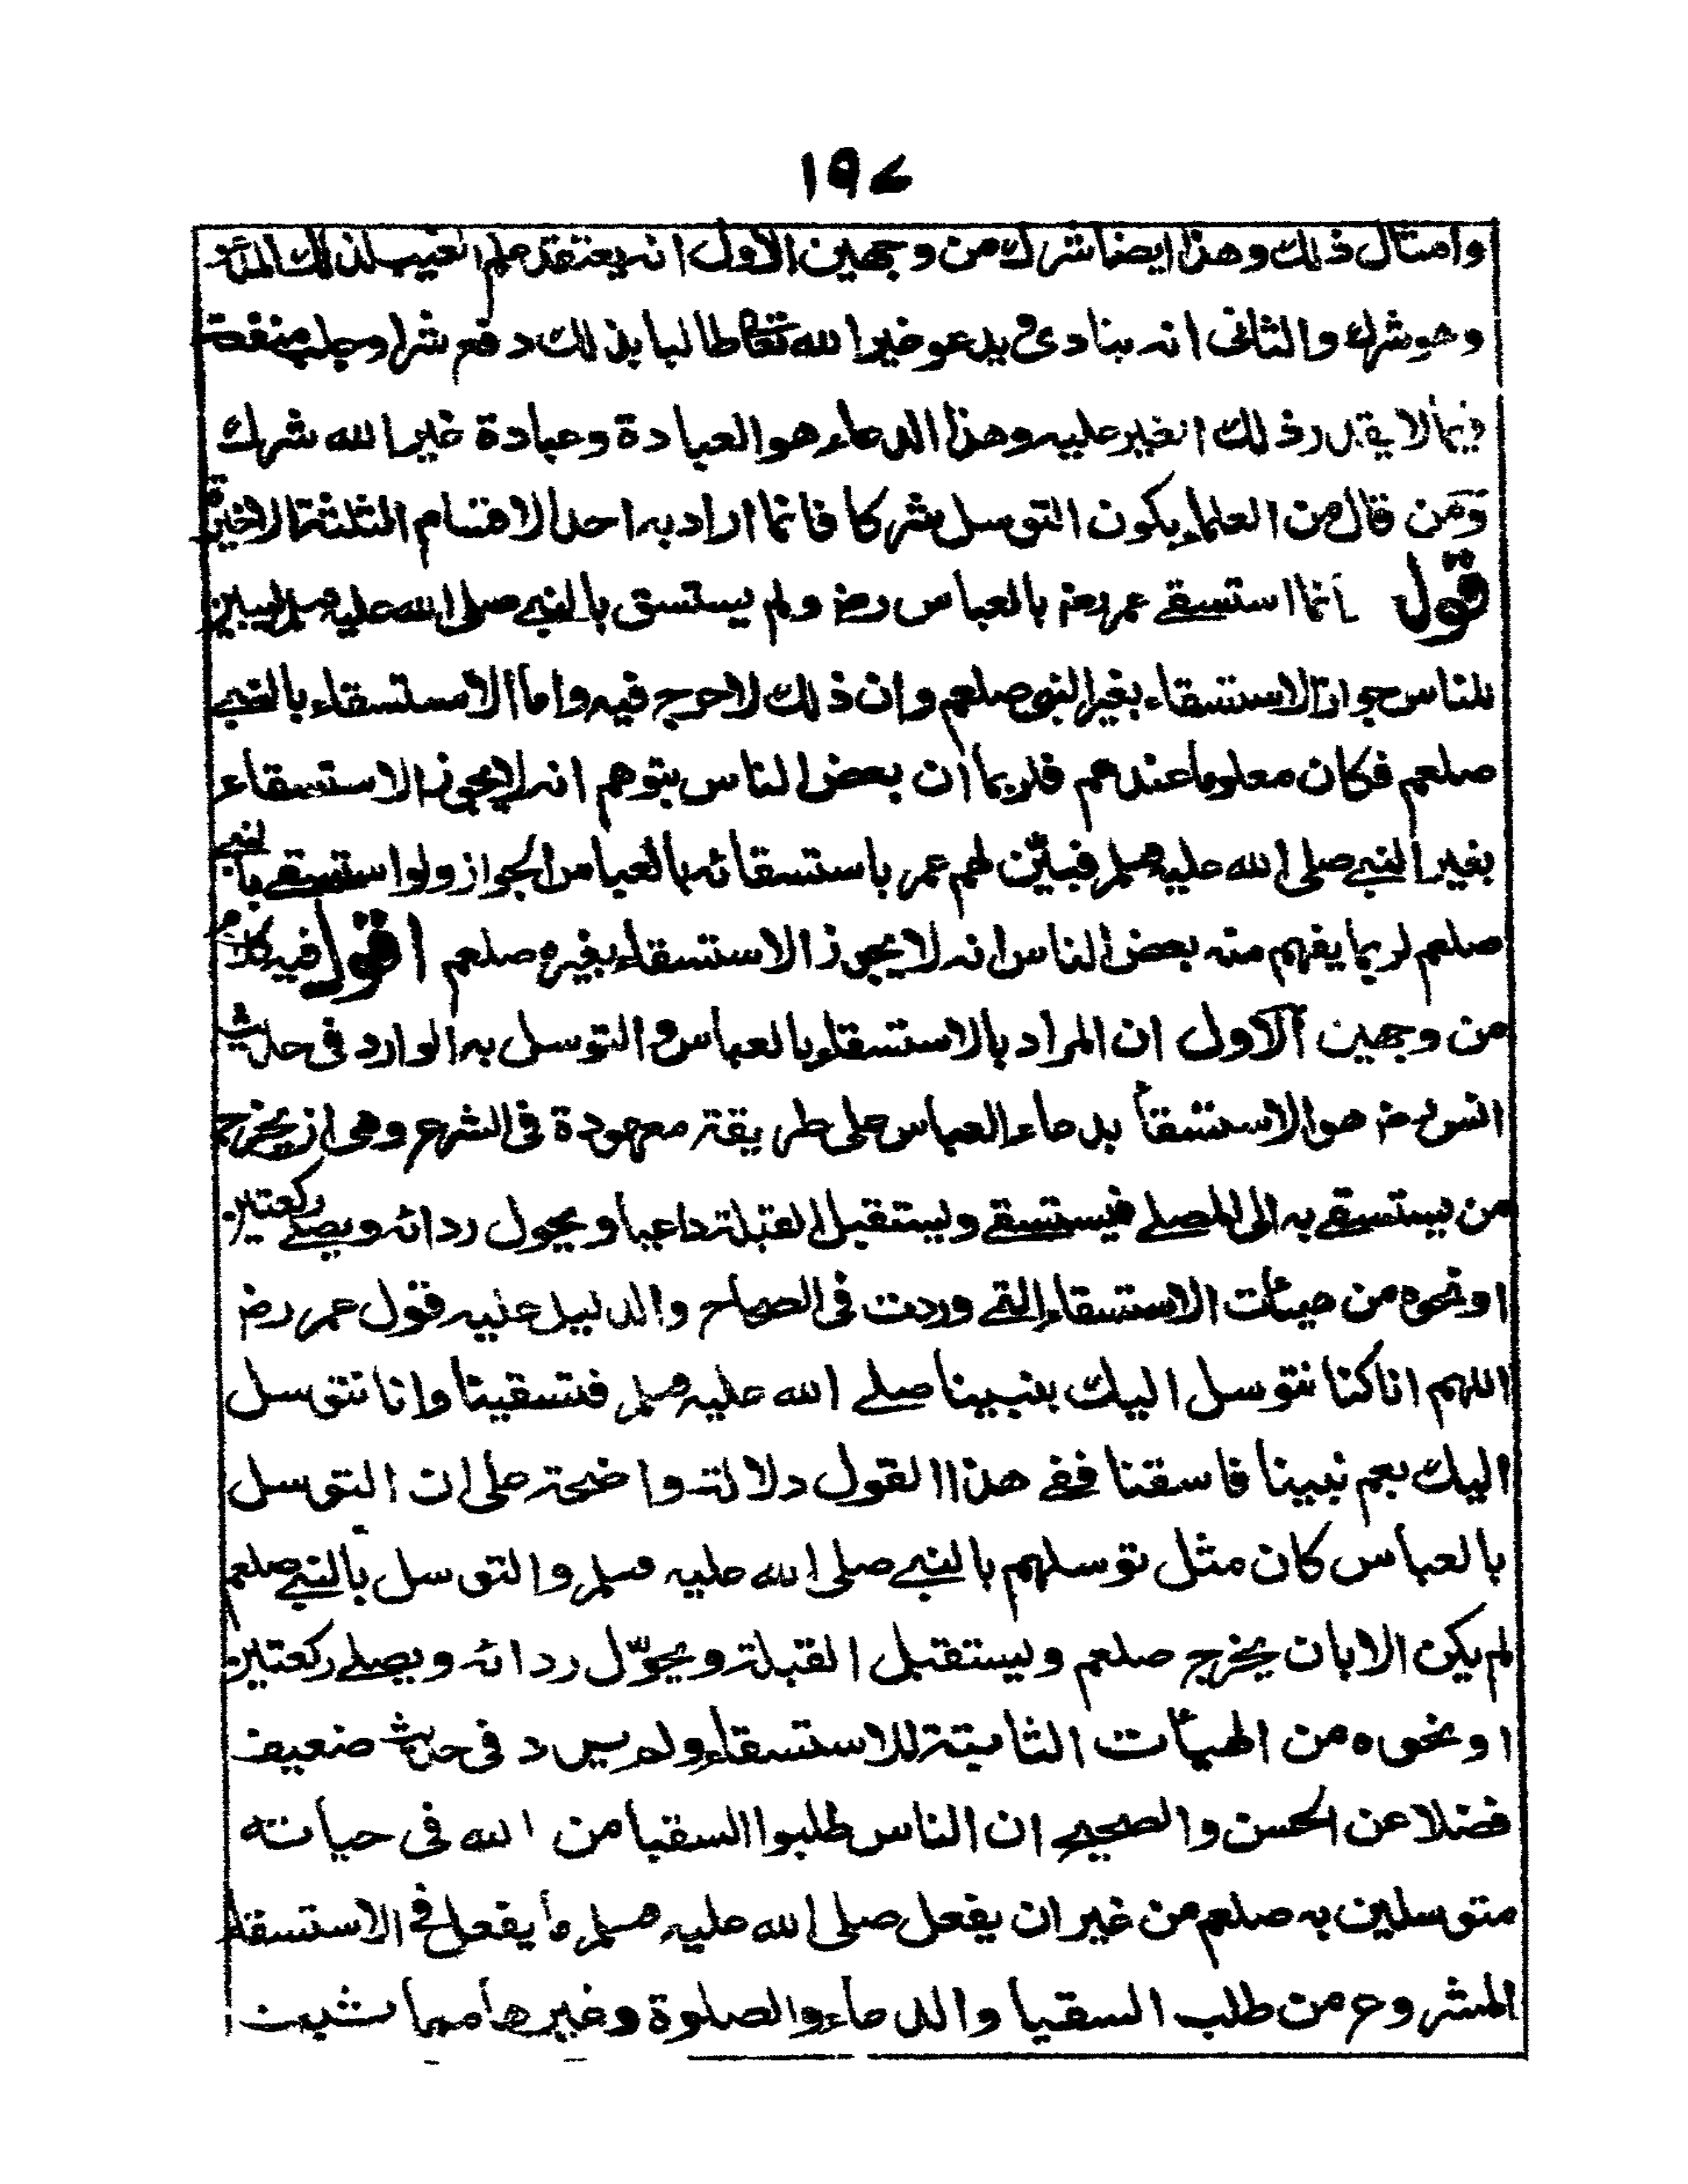 ١٩٤
وامثال ذلك وهذا ايضا شرك من وجهين الاول انه يعتقد علم الغيب لذلك المنادى
وهو شرك والثانى انه ينادى ويدعو غير الله تعالى طالبا بذلك دفع شر او جلب منفعة
فيما لا يقدر ذلك الغير عليه وهذا الدعاء هو العبادة وعبادة غير الله شرك
ومن قال من العلماء بكون التوسل شركا فانما اراد به احد الاقسام الثلثة الاخيرة
قوله انما استسقے عمر رض بالعباس رض ولم يستسق بالنبے صلى الله عليه وسلم ليبين
للناس جواز الاستسقاء بغير النبى صلعم وان ذلك لا حرج فيه واما الاستسقاء بالنبے
صلعم فكان معلوما عندهم فلربما ان بعض الناس يتوهم انه لا يجوز الاستسقاء
بغير النبے صلى الله عليه وسلم فبيّن لهم عمر باستسقائه بالعباس الجواز ولو استسقے بالنبے
صلعم لربما يفهم منه بعض الناس انه لا يجوز الاستسقاء بغيره صلعم اقول فيه كلام
من وجهين الاول ان المراد بالاستسقاء بالعباس والتوسل به الوارد فى حديث
انس رض هو الاستسقاء بدعاء العباس على طريقة معهودة فى الشرع وهى ان يخرج
من يستسقے به الى المصلے فيستسقے ويستقبل القبلة داعيا ويحول ردائه ويصلے ركعتين
او نحوه من هيئات الاستسقاء التے وردت فى الصحاح والدليل عليه قول عمر رض
اللهم انا كنا نتوسل اليك بنبينا صلے الله عليه وسلم فتسقينا وانا نتوسل
اليك بعم نبينا فاسقنا ففے هذا القول دلالة واضحة على ان التوسل
بالعباس كان مثل توسلهم بالنبے صلى الله عليه وسلم والتوسل بالنبے صلعم
لم يكن الا بان يخرج صلعم ويستقبل القبلة ويحوّل ردائه ويصلے ركعتين
او نحوه من الهيأت الثابتة للاستسقاء ولم يرد فى حديث ضعيف
فضلا عن الحسن والصحيح ان الناس طلبوا السقيا من الله فى حياته
متوسلين به صلعم من غير ان يفعل صلى الله عليه وسلم ما يفعل فے الاستسقاء
المشروع من طلب السقيا والدعاء والصلوة وغيرها مما ثبت